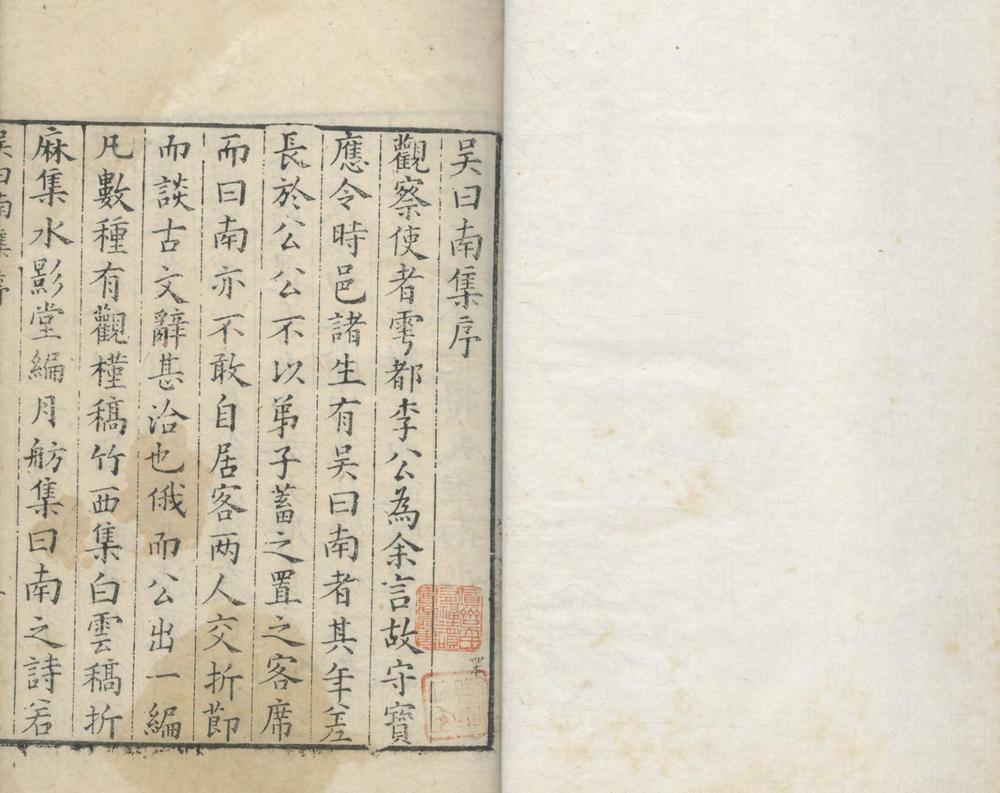 吴曰南集序
觀察使者雩都李公為余言故守寶
應令時邑諸生有吴曰南者其年差
長於公公不以弟子蓄之置之客席
而曰南亦不敢自居客两人交折節
而談古文辭甚洽也俄而公出一編
凡數種有觀槿稿竹西集白雲稿折
麻集水影堂編月舫集曰南之詩若
吴曰南集序